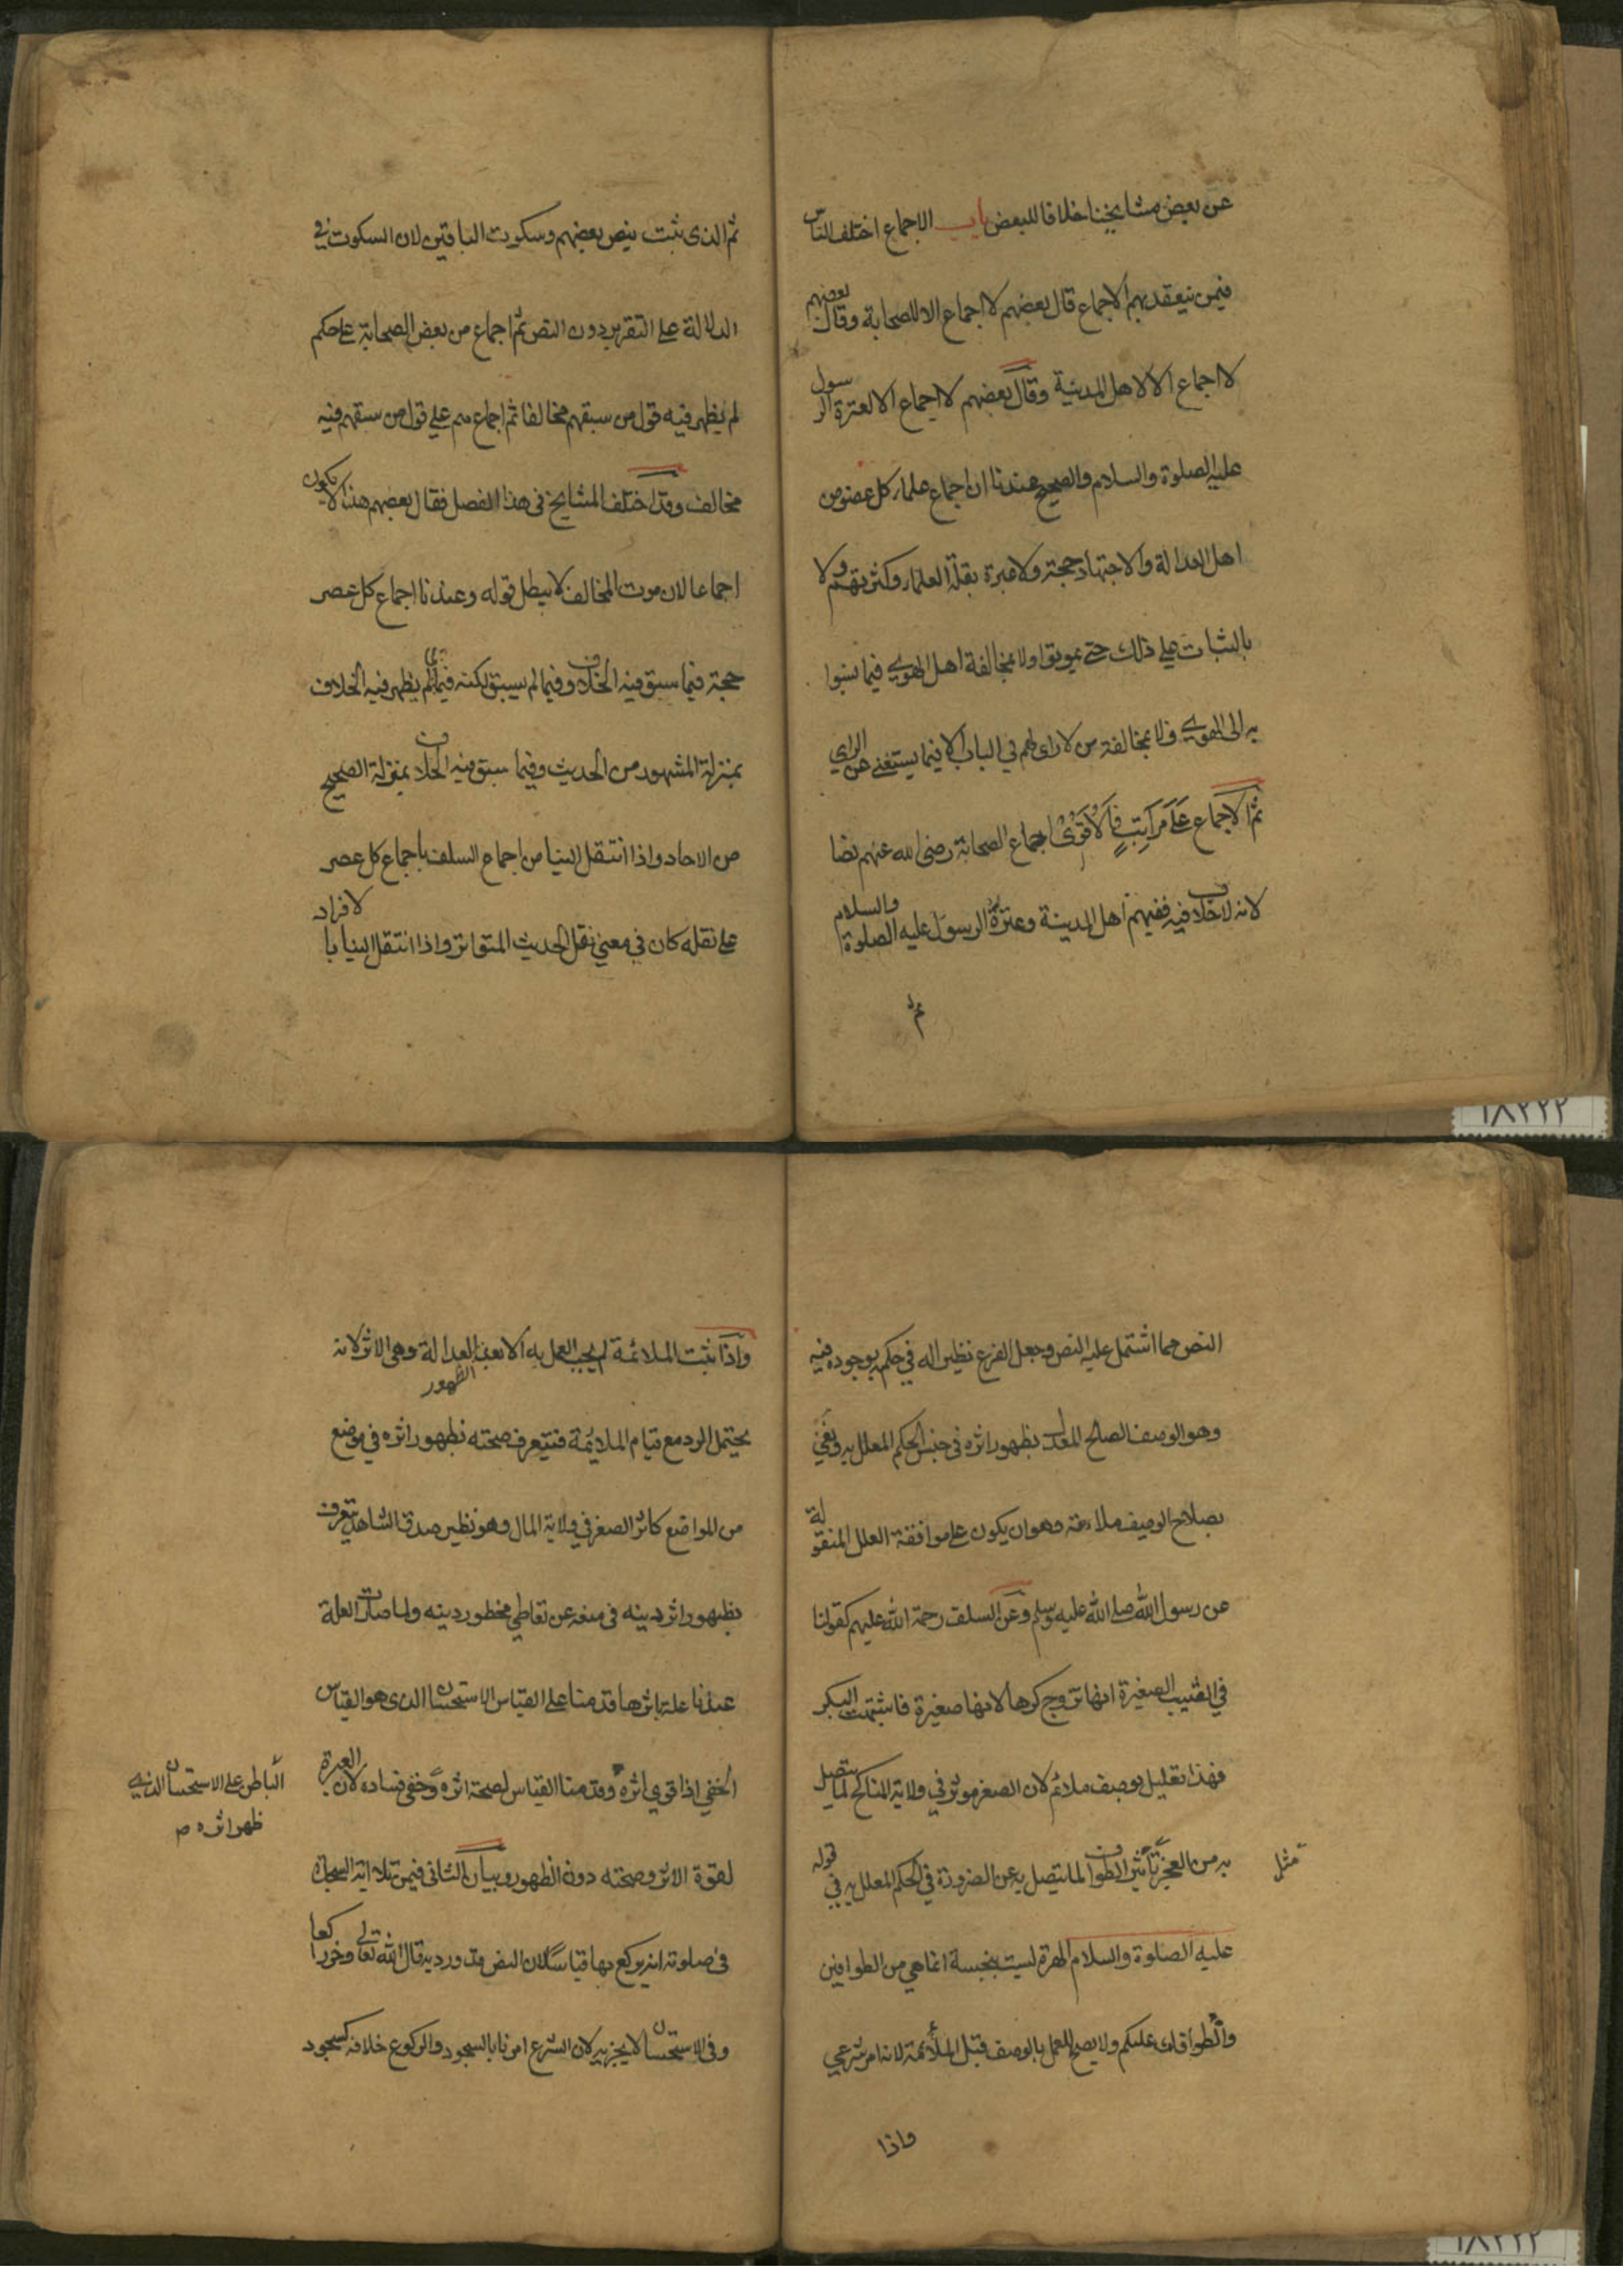 عن بعض مشايخنا خلافا للبعض باب الاجماع اختلف الناس
فيمن ينعقد بهم الاجماع قال بعضهم لا اجماع الا للصحابة وقال بعضهم
لا اجماع الا لاهل المدينة وقال بعضهم لا اجماع الا لعترة الرسول
عليه الصلوة والسلام والصحيح عندنا ان اجماع علماء كل عصر من
اهل العدالة والاجتهاد حجة ولا عبرة بقلة العلماء وكثرتهم ولا
بالثبات علي ذلك حتي يموتوا ولا بمخالفة اهل الهوي فيما نسبوا
به الى الهوي ولا بمخالفة من لا راى لهم في الباب الا فيما يستغني عن الراي
ثم الاجماع على مراتب فالاقوى اجماع الصحابة رضى الله عنهم نصا
لانه لا خلاف فيه ففيهم اهل المدينة وعترة الرسول عليه الصلوة والسلام
ثم
ثم الذى ثبت بنص بعضهم وسكوت الباقين لان السكوت في
الدلالة علي التقرير دون النص ثم اجماع من بعض الصحابة علي حكم
لم يظهر فيه قول من سبقهم مخالفا ثم اجماعهم علي قول من سبقهم فيه
مخالف وقد اختلف المشايخ فى هذا الفصل فقال بعضهم هذا لا يكون
اجماعا لان موت المخالف لا يبطل قوله وعندنا اجماع كل عصر
حجة فيما سبق فيه الخلاف وفيما لم يسبق لكنه فيما لم يظهر فيه الخلاف
بمنزلة المشهور من الحديث وفيما سبق فيه الخلاف بمنزلة الصحيح
من الاحاد واذا انتقل الينا من اجماع السلف باجماع كل عصر
علي نقله كان في معني نقل الحديث المتواتر واذا انتقل الينا بالافراد
النص مما اشتمل عليه النص وجعل الفرع نظيرا له في حكمه بوجوده فيه
وهو الوصف الصالح المعدل بظهور اثره فى جنس الحكم المعلل به ونعني
بصلاح الوصف ملائمته وهو ان يكون علي موافقة العلل المنقولة
عن رسول الله صلي الله عليه وسلم وعن السلف رحمة الله عليهم كقولنا
في الثيب الصغيرة انها تزوج كرها لانها صغيرة فاشبهت البكر
فهذا تعليل بوصف ملائم لان الصغر موثر في ولاية المناكح لما يتصل
به من العجز تأثير الطواف لما يتصل به من الضرورة في الحكم المعلل به في قوله
مثل
عليه الصلوة والسلام الهرة ليست بنجسة انما هي من الطوافين
والطوافات عليكم ولا يصح العمل بالوصف قبل الملائمة لانه امر شرعي
واذا
واذا ثبت الملائمة لم يجب العمل به الا بعد العدالة وهى الاثر لانه
يحتمل الرد مع قيام الملائمة فتيعرف صحته بظهور اثره في موضع
الظهور
من المواضع كاثر الصغر في ولاية المال وهو نظير صدق الشاهد يتعرف
بظهور اثر دينه فى منعه عن تعاطي محظور دينه ولما صارت العلة
عندنا علة باثرها قدمنا علي القياس الاستحسان الذى هو القياس
الخفي اذا قوي اثره وقدمنا القياس لصحة اثره وخفي فساده لان العبرة
الباطن علي الاستحسان الذي
ظهر اثره ص
لقوة الاثر وصحته دون الظهور وبيان الثانى فيمن تلا اية السجدة
فى صلوته انه يركع بها قياسا لان النص قد ورد به قال الله تعالي وخر راكعا
وفى الاستحسان لا يجزيه لان الشرع امرنا بالسجود والركوع خلافه كسجود